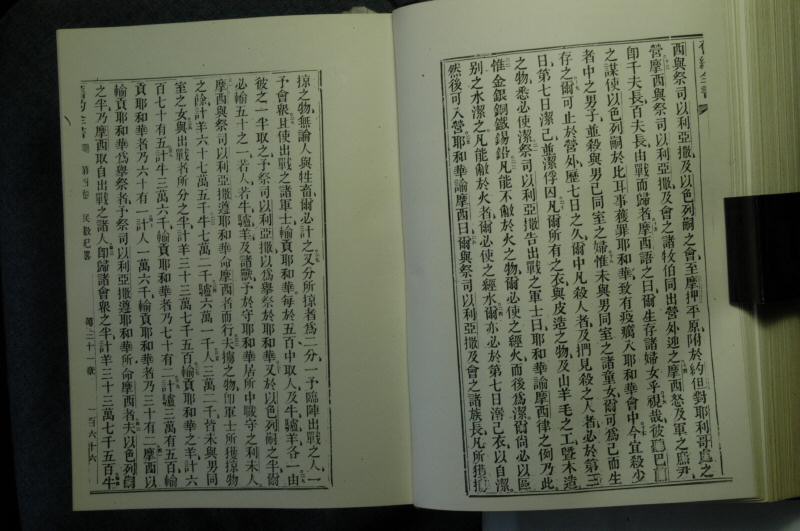 舊約全書
西與祭司以利亞撒及以色列嗣之會至摩押平原附於約但對耶利哥
營摩西與祭司以利亞撒及會之諸牧伯同出營外迎之摩西怒及軍之
即千夫長百夫長由戰而歸者摩西語之曰爾生存諸婦女乎視哉彼
之謀使以色列嗣於比耳事獲罪耶和華致有疫癘入耶和華會中今宜殺少
者中之男子並殺與男已同室之婦惟未與男同室之諸童女爾可為己而生
存之爾可止於營外歷七日之久爾中凡殺人者及捫見殺之人者必於第三
日第七日潔己並潔俘囚凡爾所有之衣與皮造之物及山羊毛之工曁木造
之物悉必使潔祭司以利亞撒告出戰之軍士曰耶和華諭摩西律之例乃此
惟金銀銅鐵錫鉛凡能不敝於火之物爾必使之經火而後為潔爾尚必以區
別之水潔之凡能敝於火者爾必使之經水爾亦必於第七日澣己衣以自潔
然後可入營耶和華諭摩西曰爾與祭司以利亞撒及會之諸族長凡所獲
掠之物無論人與牲畜爾必計之又分所掠者為二分一予臨陣出戰之人一
予會衆且使出戰之諸軍士輸貢耶和華每於五百中取人及牛驢羊各一由
彼之一半取之予祭司以利亞撒以為舉祭於耶和華又於以色列嗣之半爾
必輸五十之一若人若牛驢羊及諸獸予於守耶和華居所中職守之利未人
摩西與祭司以利亞撒遵耶和華命摩西者而行夫擄之物即軍士所獲掠物
之餘計羊六十七萬五千牛七萬二千驢六萬一千人三萬二千皆未與男同
室之女與出戰者所分之半計羊三十三萬七千五百輸貢耶和華之羊計六
百七十有五計牛三萬六千輸貢耶和華者乃七十有二計驢三萬有五百輸
貢耶和華者乃六十有一計人一萬六千輸貢耶和華者乃三十有二摩西以
輸貢耶和華為舉祭者予祭司以利亞撒遵耶和華所命摩西者夫以色列
之半乃摩西取自出戰之諸人即歸諸會衆之半計羊三十三萬七千五百牛
第四卷 民數紀畧 第三十一章 一百六十六